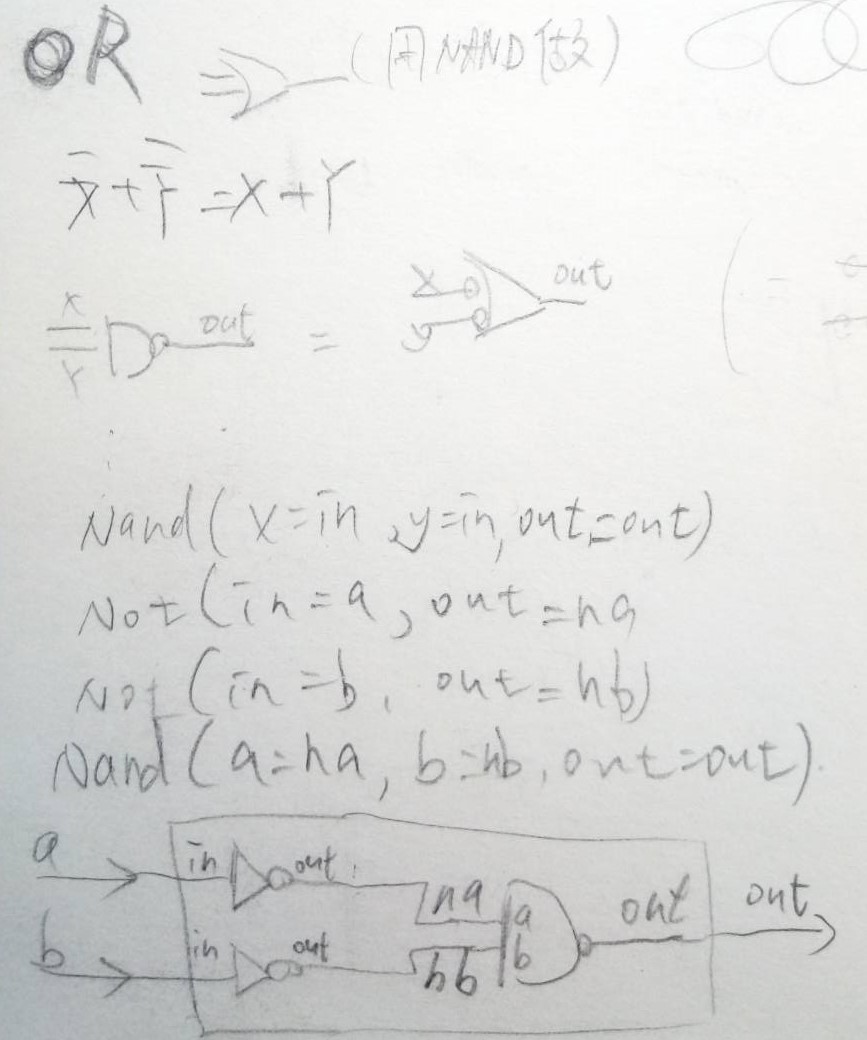 OR (用NAND做)
X̿+Y̿=X+Y
X
Y out = X y out
Nand(x=in, y=in, out=out)
Not(in=a, out=na
Not(in=b, out=nb)
Nand(a=na, b=nb, out=out).
a in out na a out out
b in out nb b